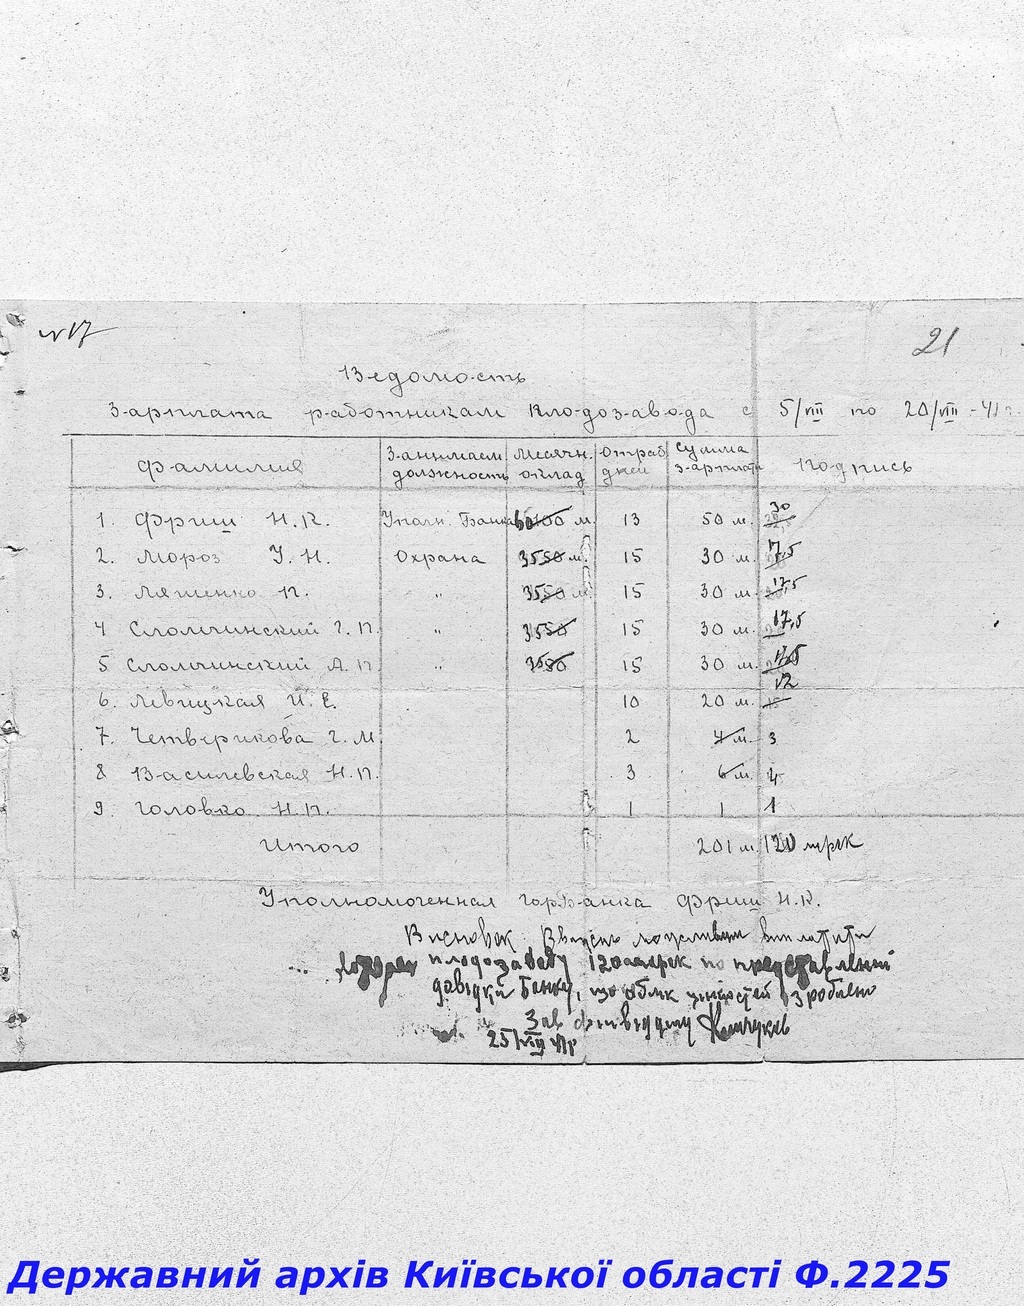 № 17
21
Ведомость
Зарплата работникам Плодозавода с 5/VIII по 20/VIII - 41 г.
Фамилия Занимаем. должность Месячн. оклад Отраб. дней Сумма зарплат. Подпись
1. Фриш Н.К. Уполн. Банка 60 100 м. 13 50 м. 30
2. Мороз У.Н. Охрана 35 50 м. 15 30 м. 17,5
3. Ляшенко П. " 35 50 м. 15 30 м. 17,5
4 Сломчинский Г.П. " 35 50 15 30 м. 17,5
5 Сломчинский А.П. " 35 50 15 30 м. 17,5
6. Левицкая И.Е. 10 20 м. 12
7. Четверикова Г.М. 2 4 м. 3
8 Василевская Н.П. 3 6 м. 4
9. Головко Н.П. 1 1 1
Итого 201 м. 120 марк
Уполномоченная горбанка Фриш Н.К.
Висновок. Вважаю можливим виплатити
плодозаводу 120 марок по представленій
довідки Банку, що облік цінностей зроблено
Зав фінвідділу
25/VIII 41р
Державний архів Київської області Ф.2225